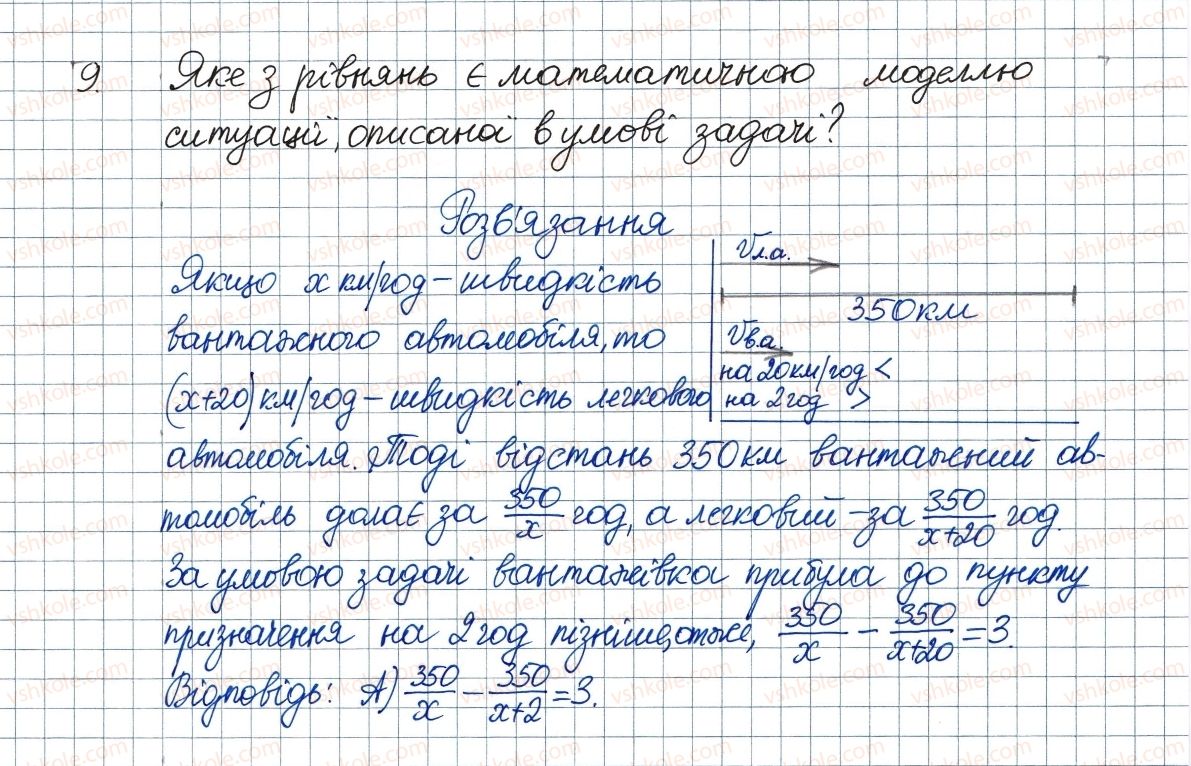 9. Яке з рівнянь є математичною моделлю
ситуації, описаної в умові задачі?
Розв'язання
Якщо x км/год – швидкість
вантажного автомобіля, то
(x+20) км/год – швидкість легкового
Vл.а.
350 км
Vв.а.
на 20 км/год <
на 2 год >
автомобіля. Тоді відстань 350 км вантажний ав-
томобіль долає за 350/x год, а легковий – за 350/(x+20) год.
За умовою задачі вантажівка прибула до пункту
призначення на 2 год пізніше, отже, 350/x – 350/(x+20) = 3.
Відповідь: А) 350/x – 350/(x+2) = 3.
vshkole.com